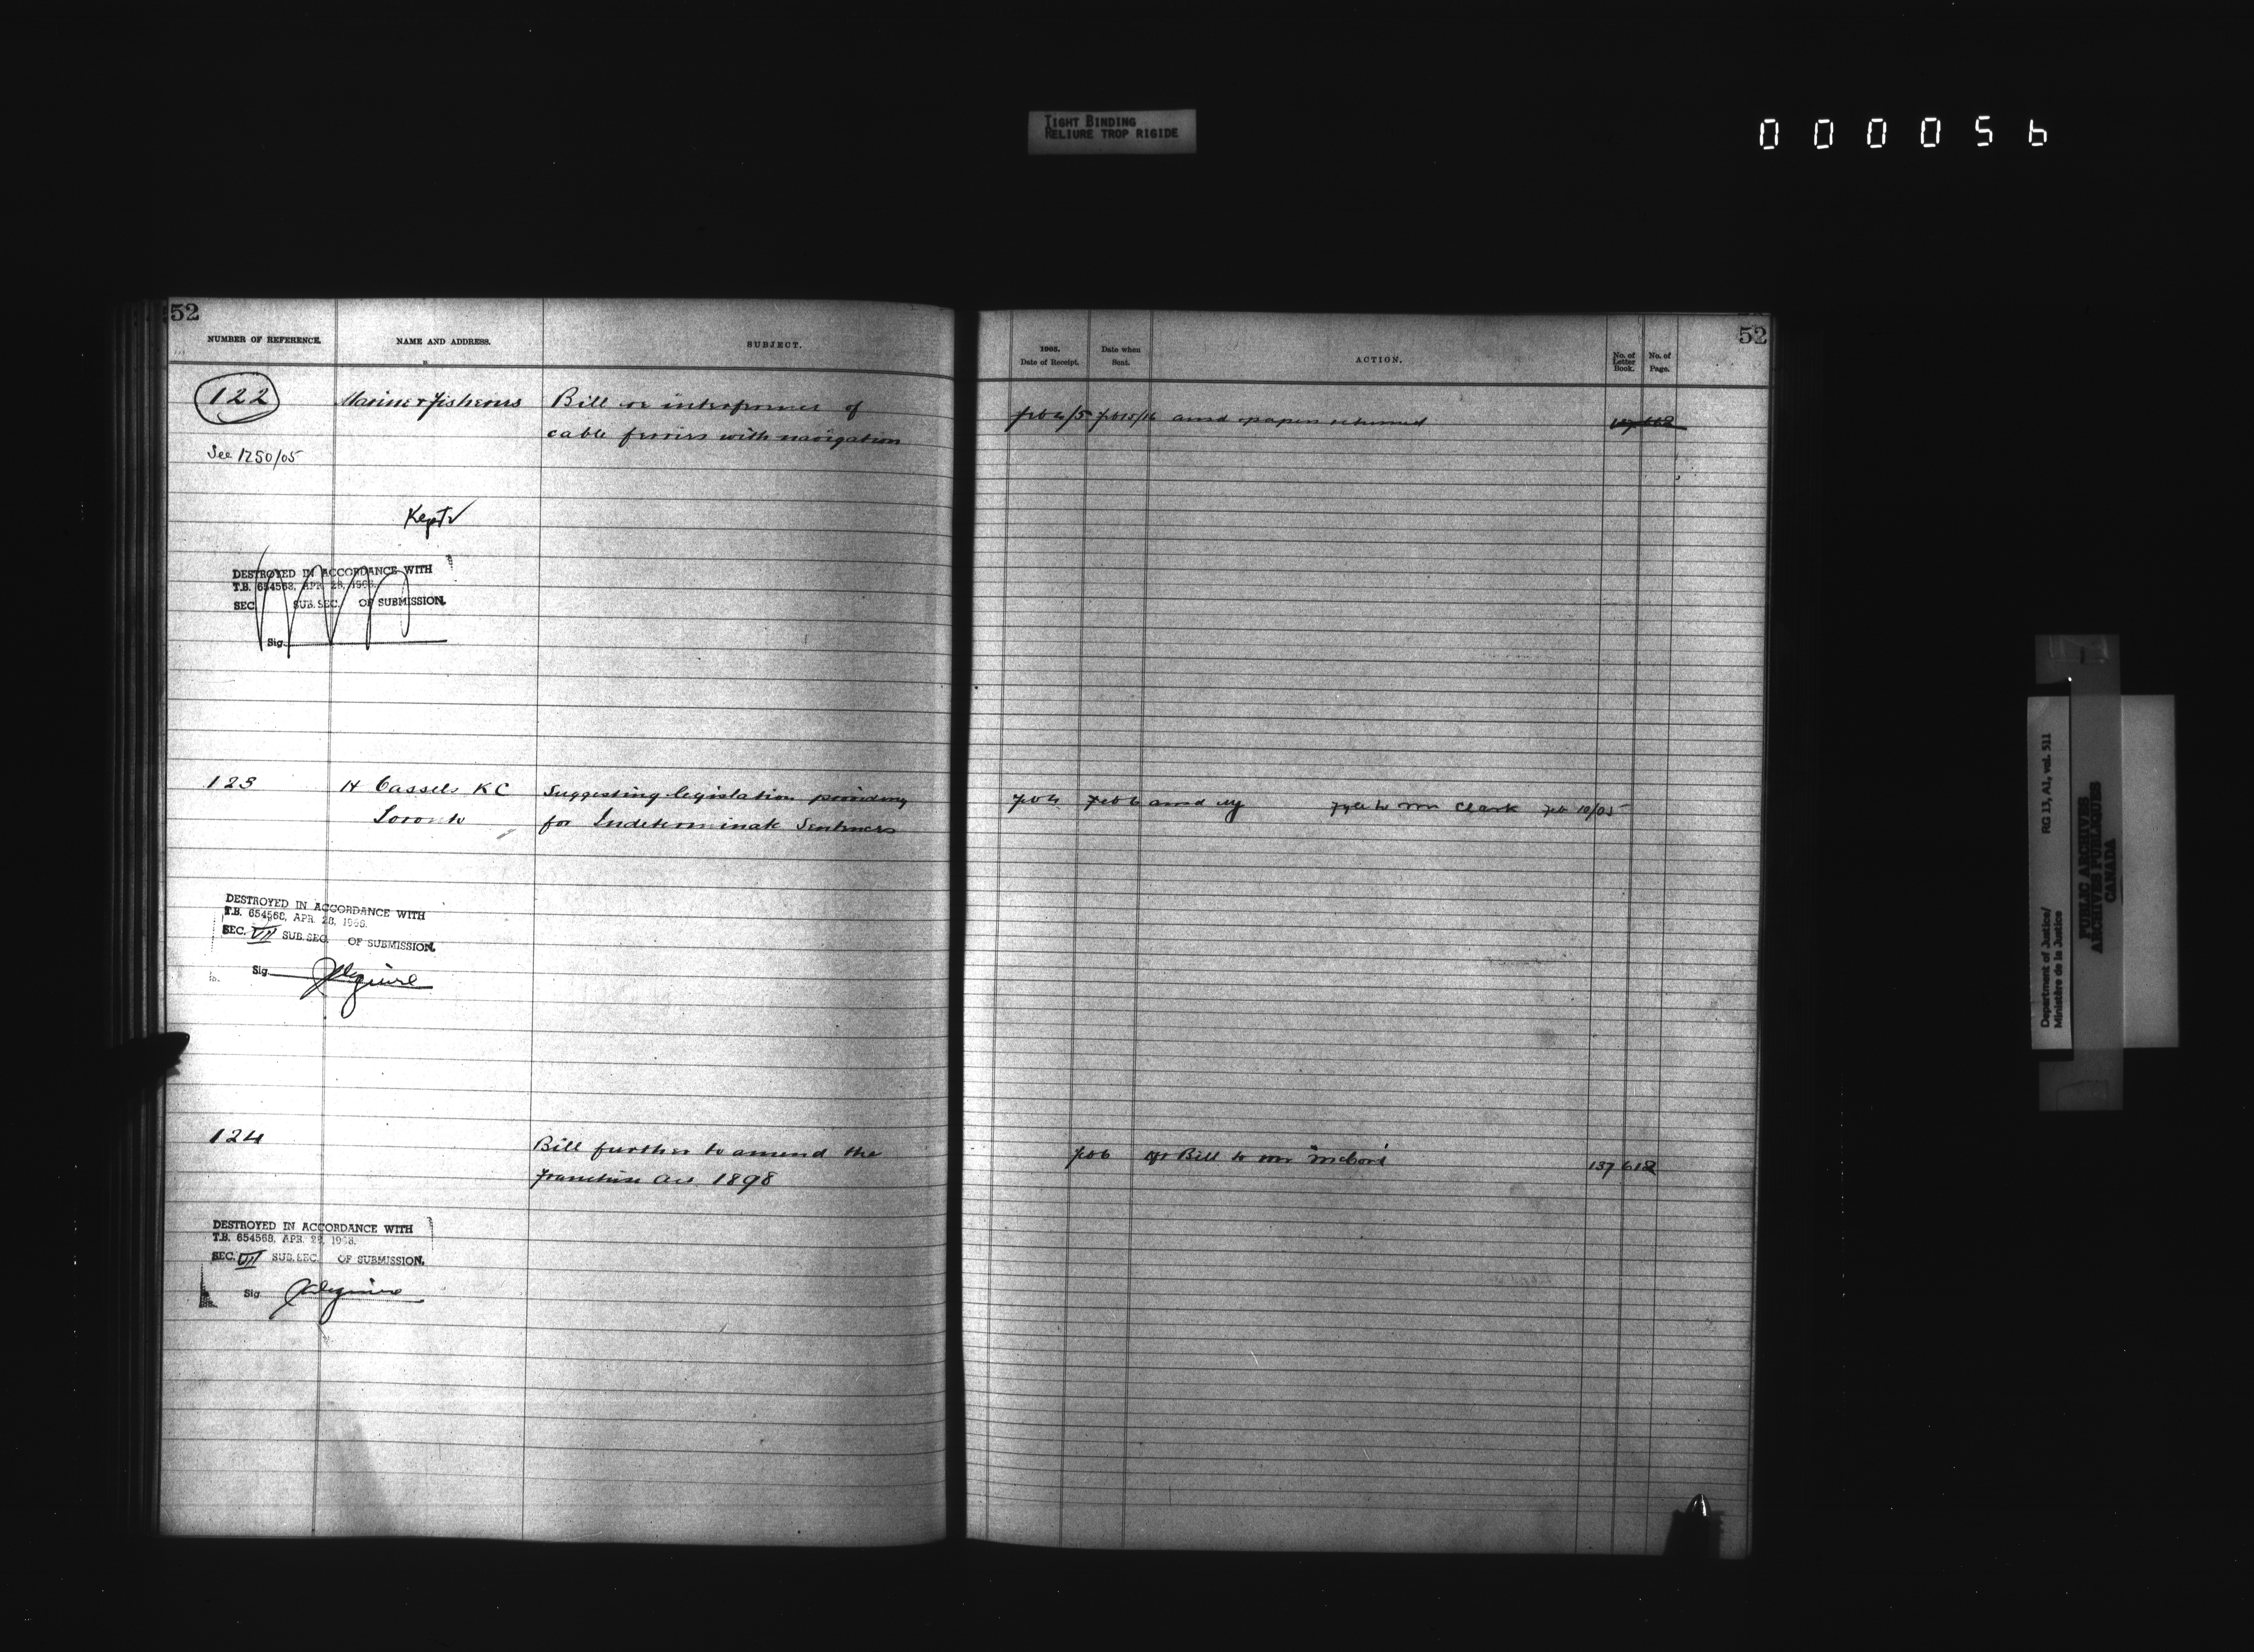 TIGHT BINDING
RELIURE TROP RIGIDE
000056
52
NUMBER OF REFERENCE.
NAME AND ADDRESS.
SUBJECT.
122
Marine & Fisheries
Bill re interference of
cable ferries with navigation
See 1250/05
Kept
DESTROYED IN ACCORDANCE WITH
T.B. 654568, APR. 28, 1966.
SEC. SUB. SEC. OF SUBMISSION.
Sig.
123
H Cassels KC
Toronto
Suggesting legislation providing
for Indeterminate Sentences
DESTROYED IN ACCORDANCE WITH
T.B. 654568, APR. 28, 1966.
SEC. VII SUB. SEC. OF SUBMISSION.
Sig.
124
Bill further to amend the
Franchise Act 1898
DESTROYED IN ACCORDANCE WITH
T.B. 654568, APR. 28, 1966.
SEC. VII SUB. SEC. OF SUBMISSION.
Sig
52
1905.
Date of Receipt.
Date when
Sent.
ACTION.
No. of
Letter
Book.
No. of
Page.
Feb 4/5 ansd papers returned
Feb 4 Feb 6 ansd to Mr Clark Feb 10/05
Feb 6 Bill to Mr 137 612
Department of Justice/ RG 13, A1, vol. 511
Ministère de la Justice
PUBLIC ARCHIVES
ARCHIVES PUBLIQUES
CANADA